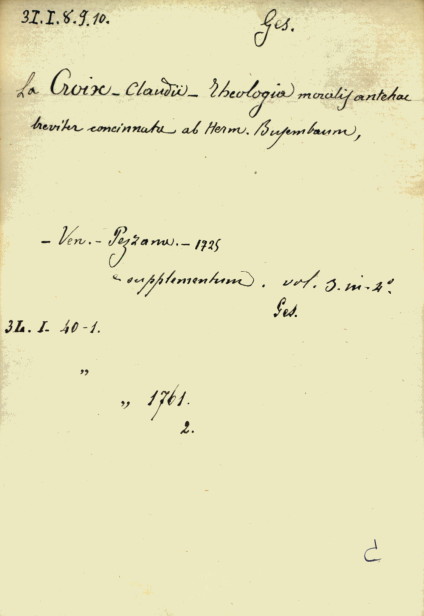 31. I. 8. 9. 10. Ges.
La Croix - Claudii - Theologia moralis antehac
breviter concinnata ab Herm. Busembaum,
- Ven. - Pezzana. - 1725
supplementum. vol. 3. in-2°.
Ges.
3L. I. 40-1.
„
„ 1761.
2.